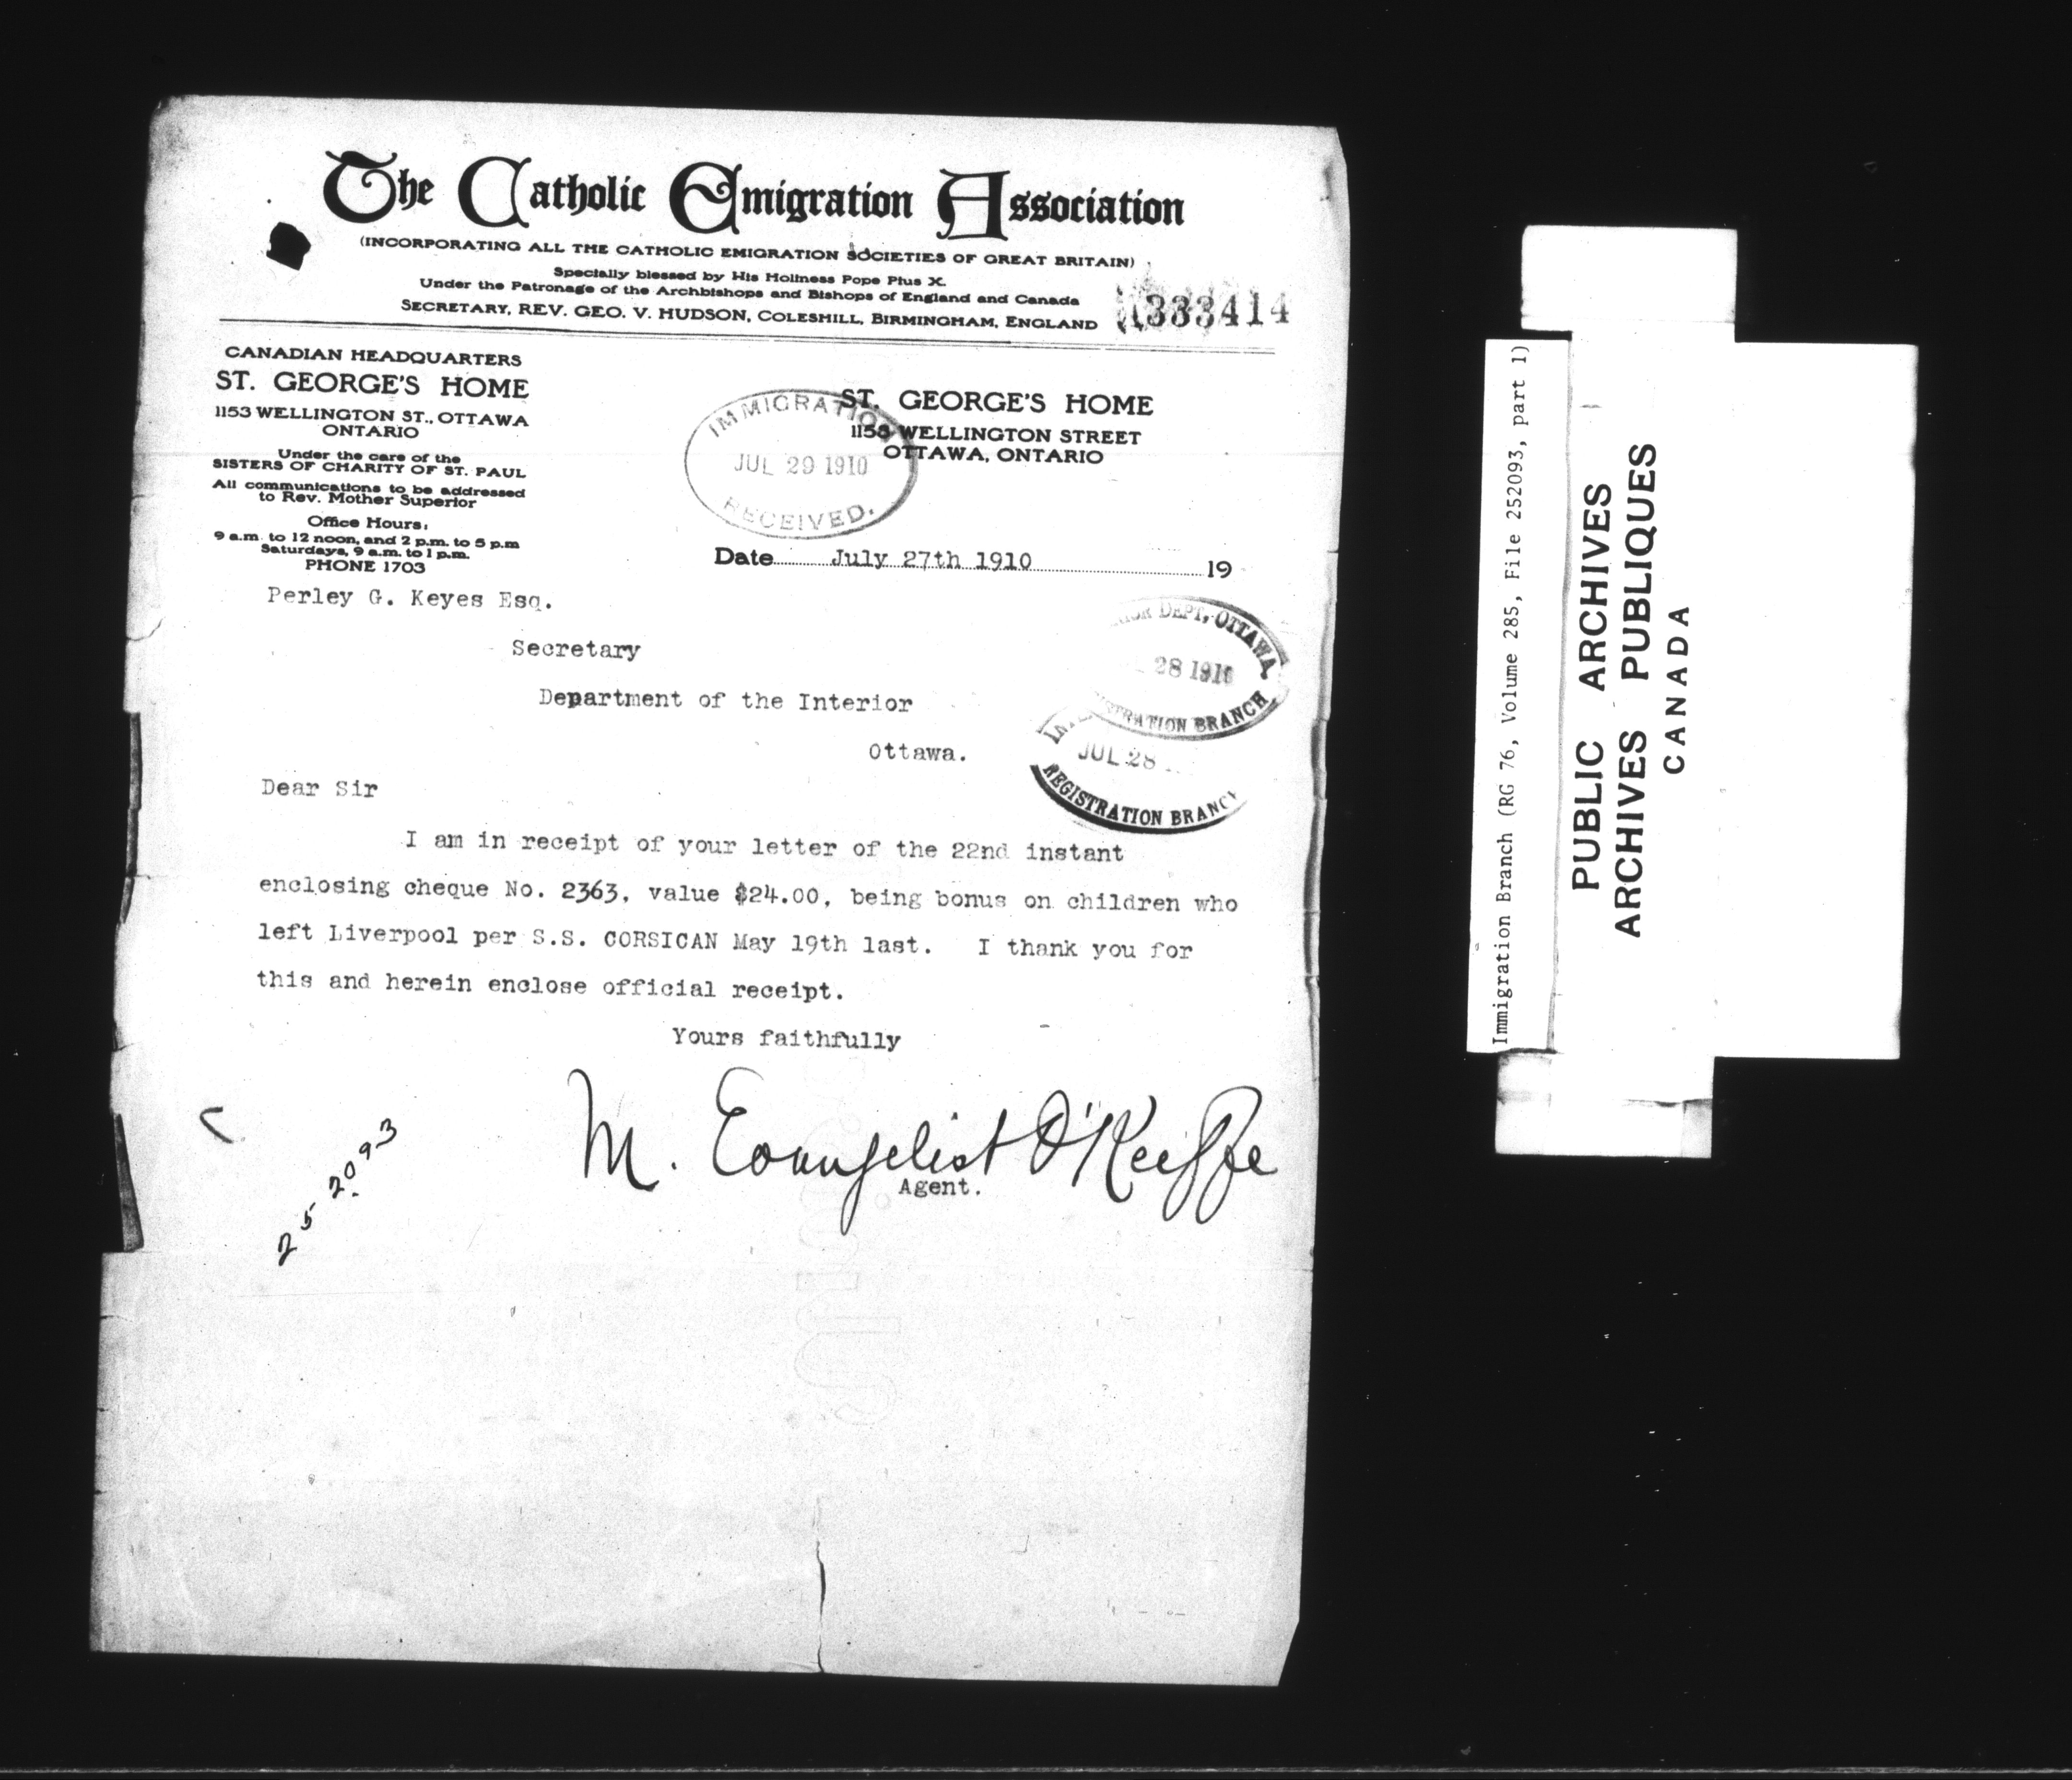 The Catholic Emigration Association
(INCORPORATING ALL THE CATHOLIC EMIGRATION SOCIETIES OF GREAT BRITAIN)
Specially blessed by His Holiness Pope Pius X.
Under the Patronage of the Archbishops and Bishops of England and Canada
SECRETARY, REV. GEO. V. HUDSON, COLESHILL, BIRMINGHAM, ENGLAND
333414
CANADIAN HEADQUARTERS
ST. GEORGE'S HOME
1153 WELLINGTON ST., OTTAWA
ONTARIO
Under the care of the
SISTERS OF CHARITY OF ST. PAUL
All communications to be addressed
to Rev. Mother Superior
Office Hours:
9 a.m. to 12 noon, and 2 p.m. to 5 p.m
Saturdays, 9 a.m. to 1 p.m.
PHONE 1703
ST. GEORGE'S HOME
1153 WELLINGTON STREET
OTTAWA, ONTARIO
IMMIGRATION
JUL 29 1910
RECEIVED.
Date July 27th 1910 19
Perley G. Keyes Esq.
Secretary
Department of the Interior
Ottawa.
DEPT, OTTAWA
28 1910
BRANCH
JUL 28
REGISTRATION BRANCH
Dear Sir
I am in receipt of your letter of the 22nd instant
enclosing cheque No. 2363, value $24.00, being bonus on children who
left Liverpool per S.S. CORSICAN May 19th last. I thank you for
this and herein enclose official receipt.
Yours faithfully
M. Evangelist O'Keeffe
Agent.
252093
Immigration Branch (RG 76, Volume 285, File 252093, part 1)
PUBLIC ARCHIVES
ARCHIVES PUBLIQUES
CANADA